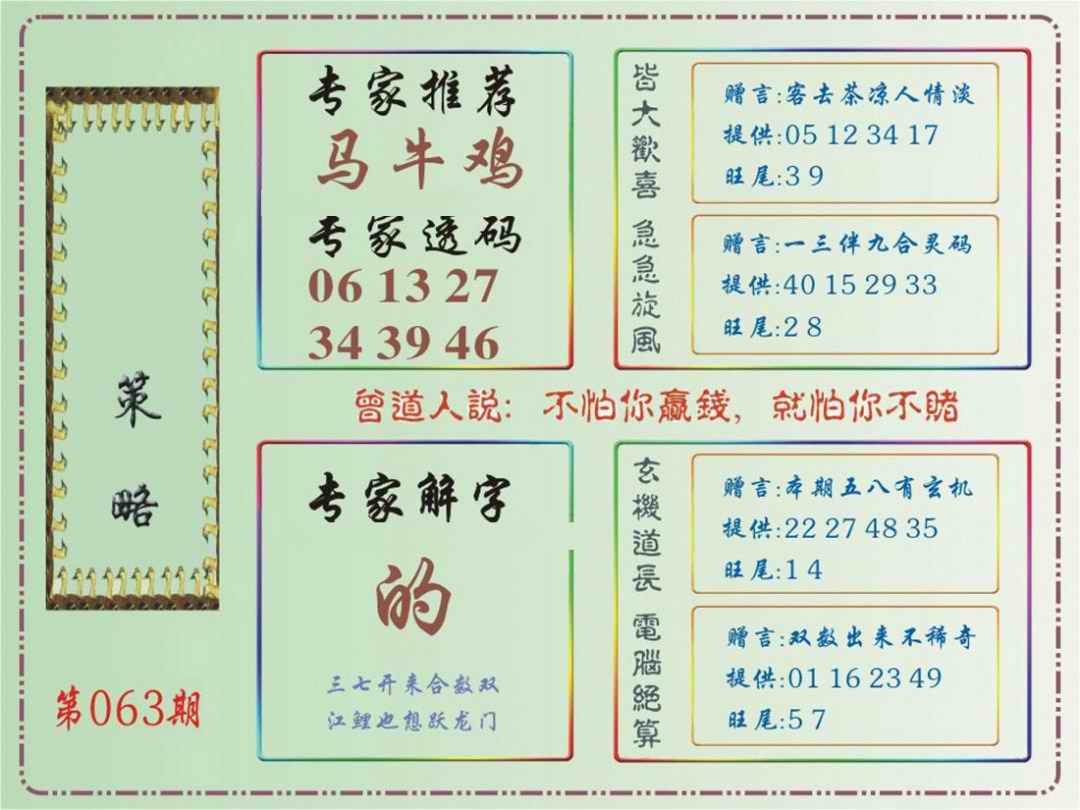 策略
第063期
专家推荐
马牛鸡
专家透码
06 13 27
34 39 46
皆大歡喜
赠言:客去茶凉人情淡
提供:05 12 34 17
旺尾:3 9
急急旋风
赠言:一三伴九合灵码
提供:40 15 29 33
旺尾:2 8
曾道人説: 不怕你赢錢, 就怕你不賭
专家解字
的
三七开来合数双
江鲤也想跃龙门
玄機道長
赠言:本期五八有玄机
提供:22 27 48 35
旺尾:1 4
電腦絕算
赠言:双数出来不稀奇
提供:01 16 23 49
旺尾:5 7